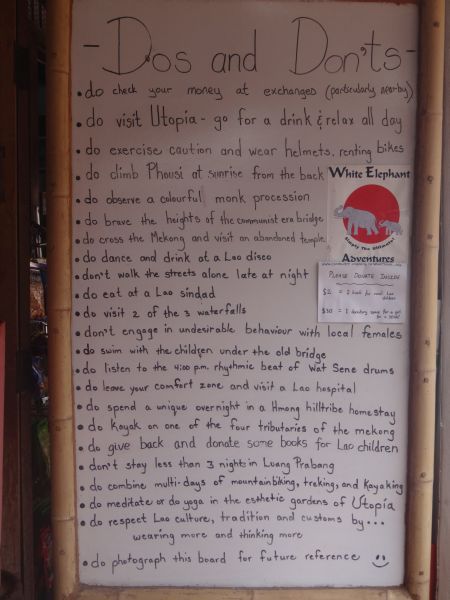 - Dos and Don'ts -
• do check your money at exchanges (particularly nearby)
• do visit Utopia - go for a drink & relax all day
• do exercise caution and wear helmets, renting bikes
• do climb Phousi at sunrise from the back
• do observe a colourful monk procession
• do brave the heights of the communist era bridge
• do cross the Mekong and visit an abandoned temple
• do dance and drink at a Lao disco
• don't walk the streets alone late at night
• do eat at a Lao sindad
• do visit 2 of the 3 waterfalls
• don't engage in undesirable behaviour with local females
• do swim with the children under the old bridge
• do listen to the 4:00 p.m. rhythmic beat of Wat Sene drums
• do leave your comfort zone and visit a Lao hospital
• do spend a unique overnight in a Hmong hilltribe homestay
• do kayak on one of the four tributaries of the mekong
• do give back and donate some books for Lao children
• don't stay less than 3 nights in Luang Prabang
• do combine multi-days of mountainbiking, treking, and kayaking
• do meditate or do yoga in the esthetic gardens of Utopia
• do respect Lao culture, tradition and customs by...
wearing more and thinking more
• do photograph this board for future reference
White Elephant
Simply The Ultimate!
Adventures
PLEASE DONATE INSIDE
$2 = 1 book for
children